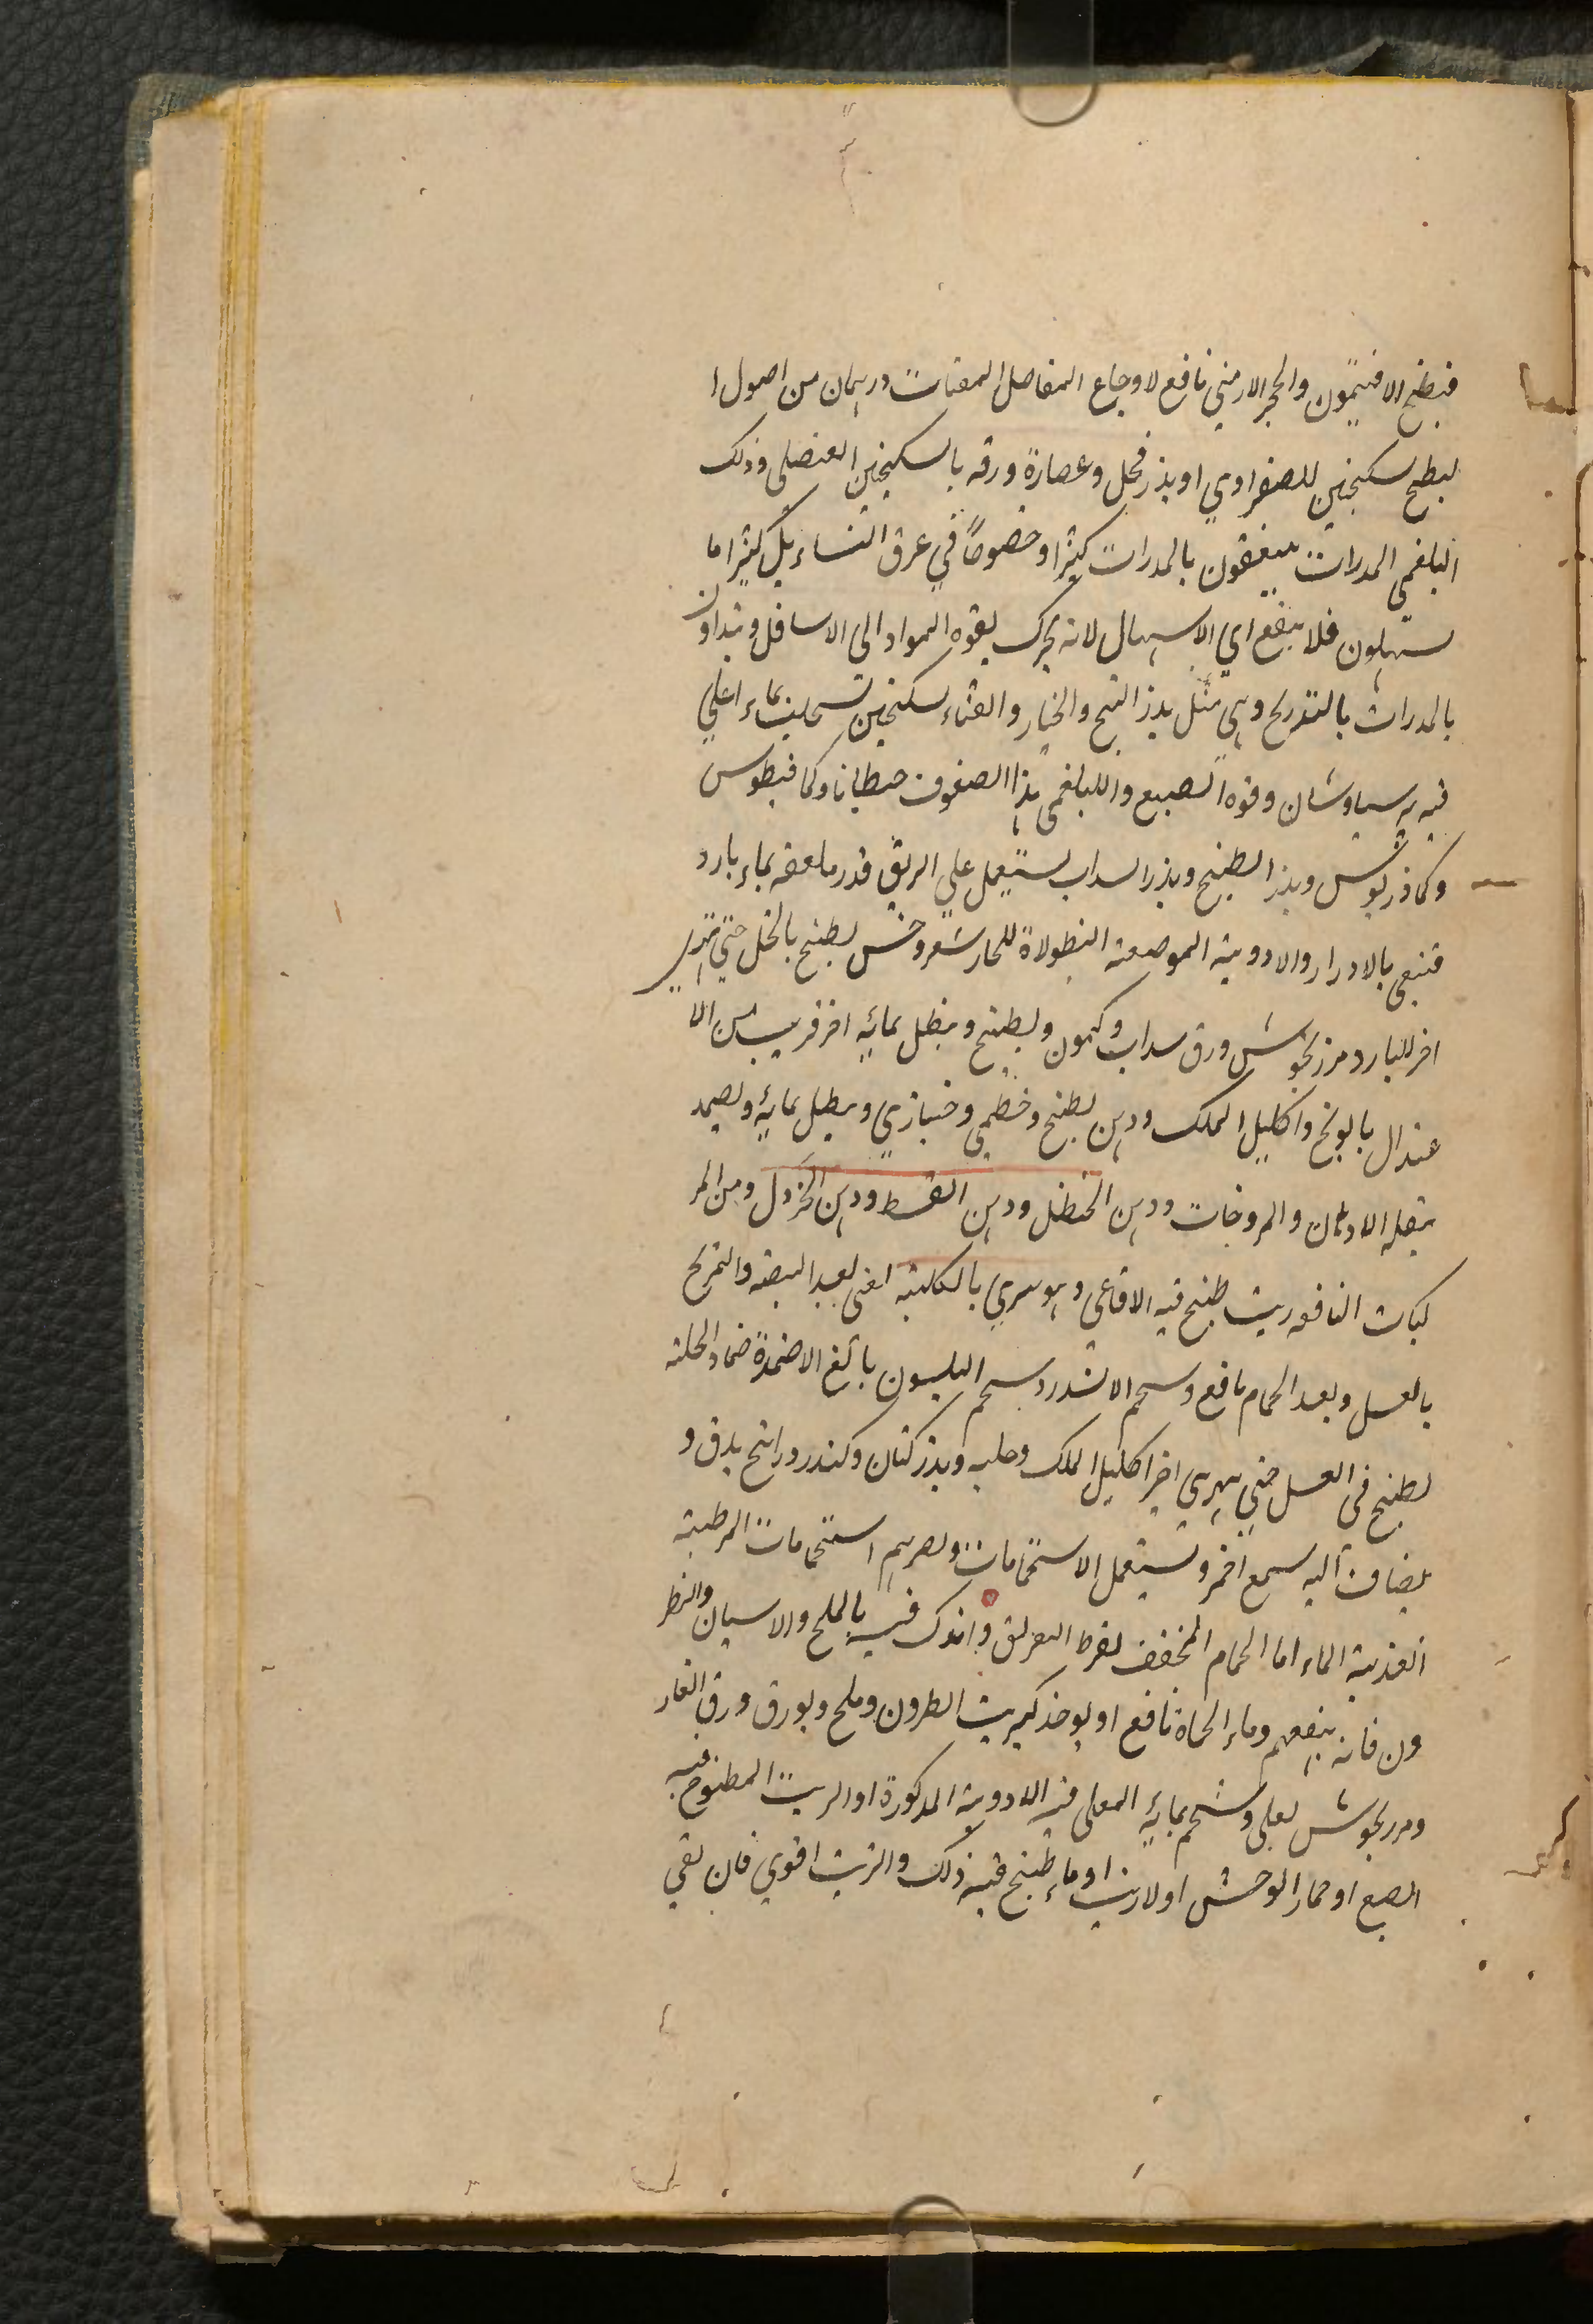 فبطبخ الافتيمون والحجر الارمني نافع لاوجاع المفاصل المقيات درهمان من اصول ا
لبطيخ سكنجبين للصفراوي او بذر فجل وعصارة ورقه بالسكنجبين العنصلى وذلك
البلغمي المدرات ينتفعون بالمدرات كثيرا وخصوصًا في عرق النساء بل كثيرا ما
يسهلون فلا ينفع اي الاسهال لانه يحرك بقوه المواد الى الاسافل ويتداون
بالمدرات بالتفريح وهي مثل بذر البطيخ والخيار والقثاء سكنجبين بماء اغلي
فيه برسياوشان وفوه الصبيع والبلغمي هذا الصفوف جنطيانا وكمافيطوس
وكماذريوس وبذر البطيخ وبذر السداب يستعمل علي الريق قدر ملعقه بماء بارد
فتنقى بالادرار والادوية الموضعية النطولاة للحار شعر وخس يطبخ بالخل حتي يتهرا
اخر للبارد مرزنجوش ورق سداب وكمون ويطبخ وينطل بمائه اخر قريب من الا
عتدال بابونج واكليل الملك ودهن يطبخ وخطمي وخبازي وينطل بمائه ويضمد
بثقله الادهان والمروخات ودهن الحنظل ودهن القسط ودهن الخزدل ومن المر
كبات النافعه زيت طبخ فيه الافاعي وهو يبري بالكلية اعني بعد النفضه والتمريخ
بالعسل وبعد الحمام نافع وشحم الاسد وشحم البلسون بالغ الاضمدة ضماد الحلبة
يطبخ في العسل حتي يهري اخر اكليل الملك وحلبه وبذر كتان وكندر وراتنج يدق و
يضاف اليه شمع احمر ويستعمل الاستحمامات ويضرهم استحمامات المرطبة
العذبة الماء اما الحمام المجفف لفرط التعريق والدلك فيه بالملح والاشنان والنطر
ون فانه ينفعهم وماء الحماة نافع او يوخذ كبريت الطرون وملح وبورق ورق الغار
ومرزنجوش يغلى وشحم بمايه المغلى فيه الادوية المذكورة او الزيت المطبوخ فيه
الضبع او حمار الوحش اولا زيت او ماء طبخ فيه ذلك والزيت اقوي فان بقي